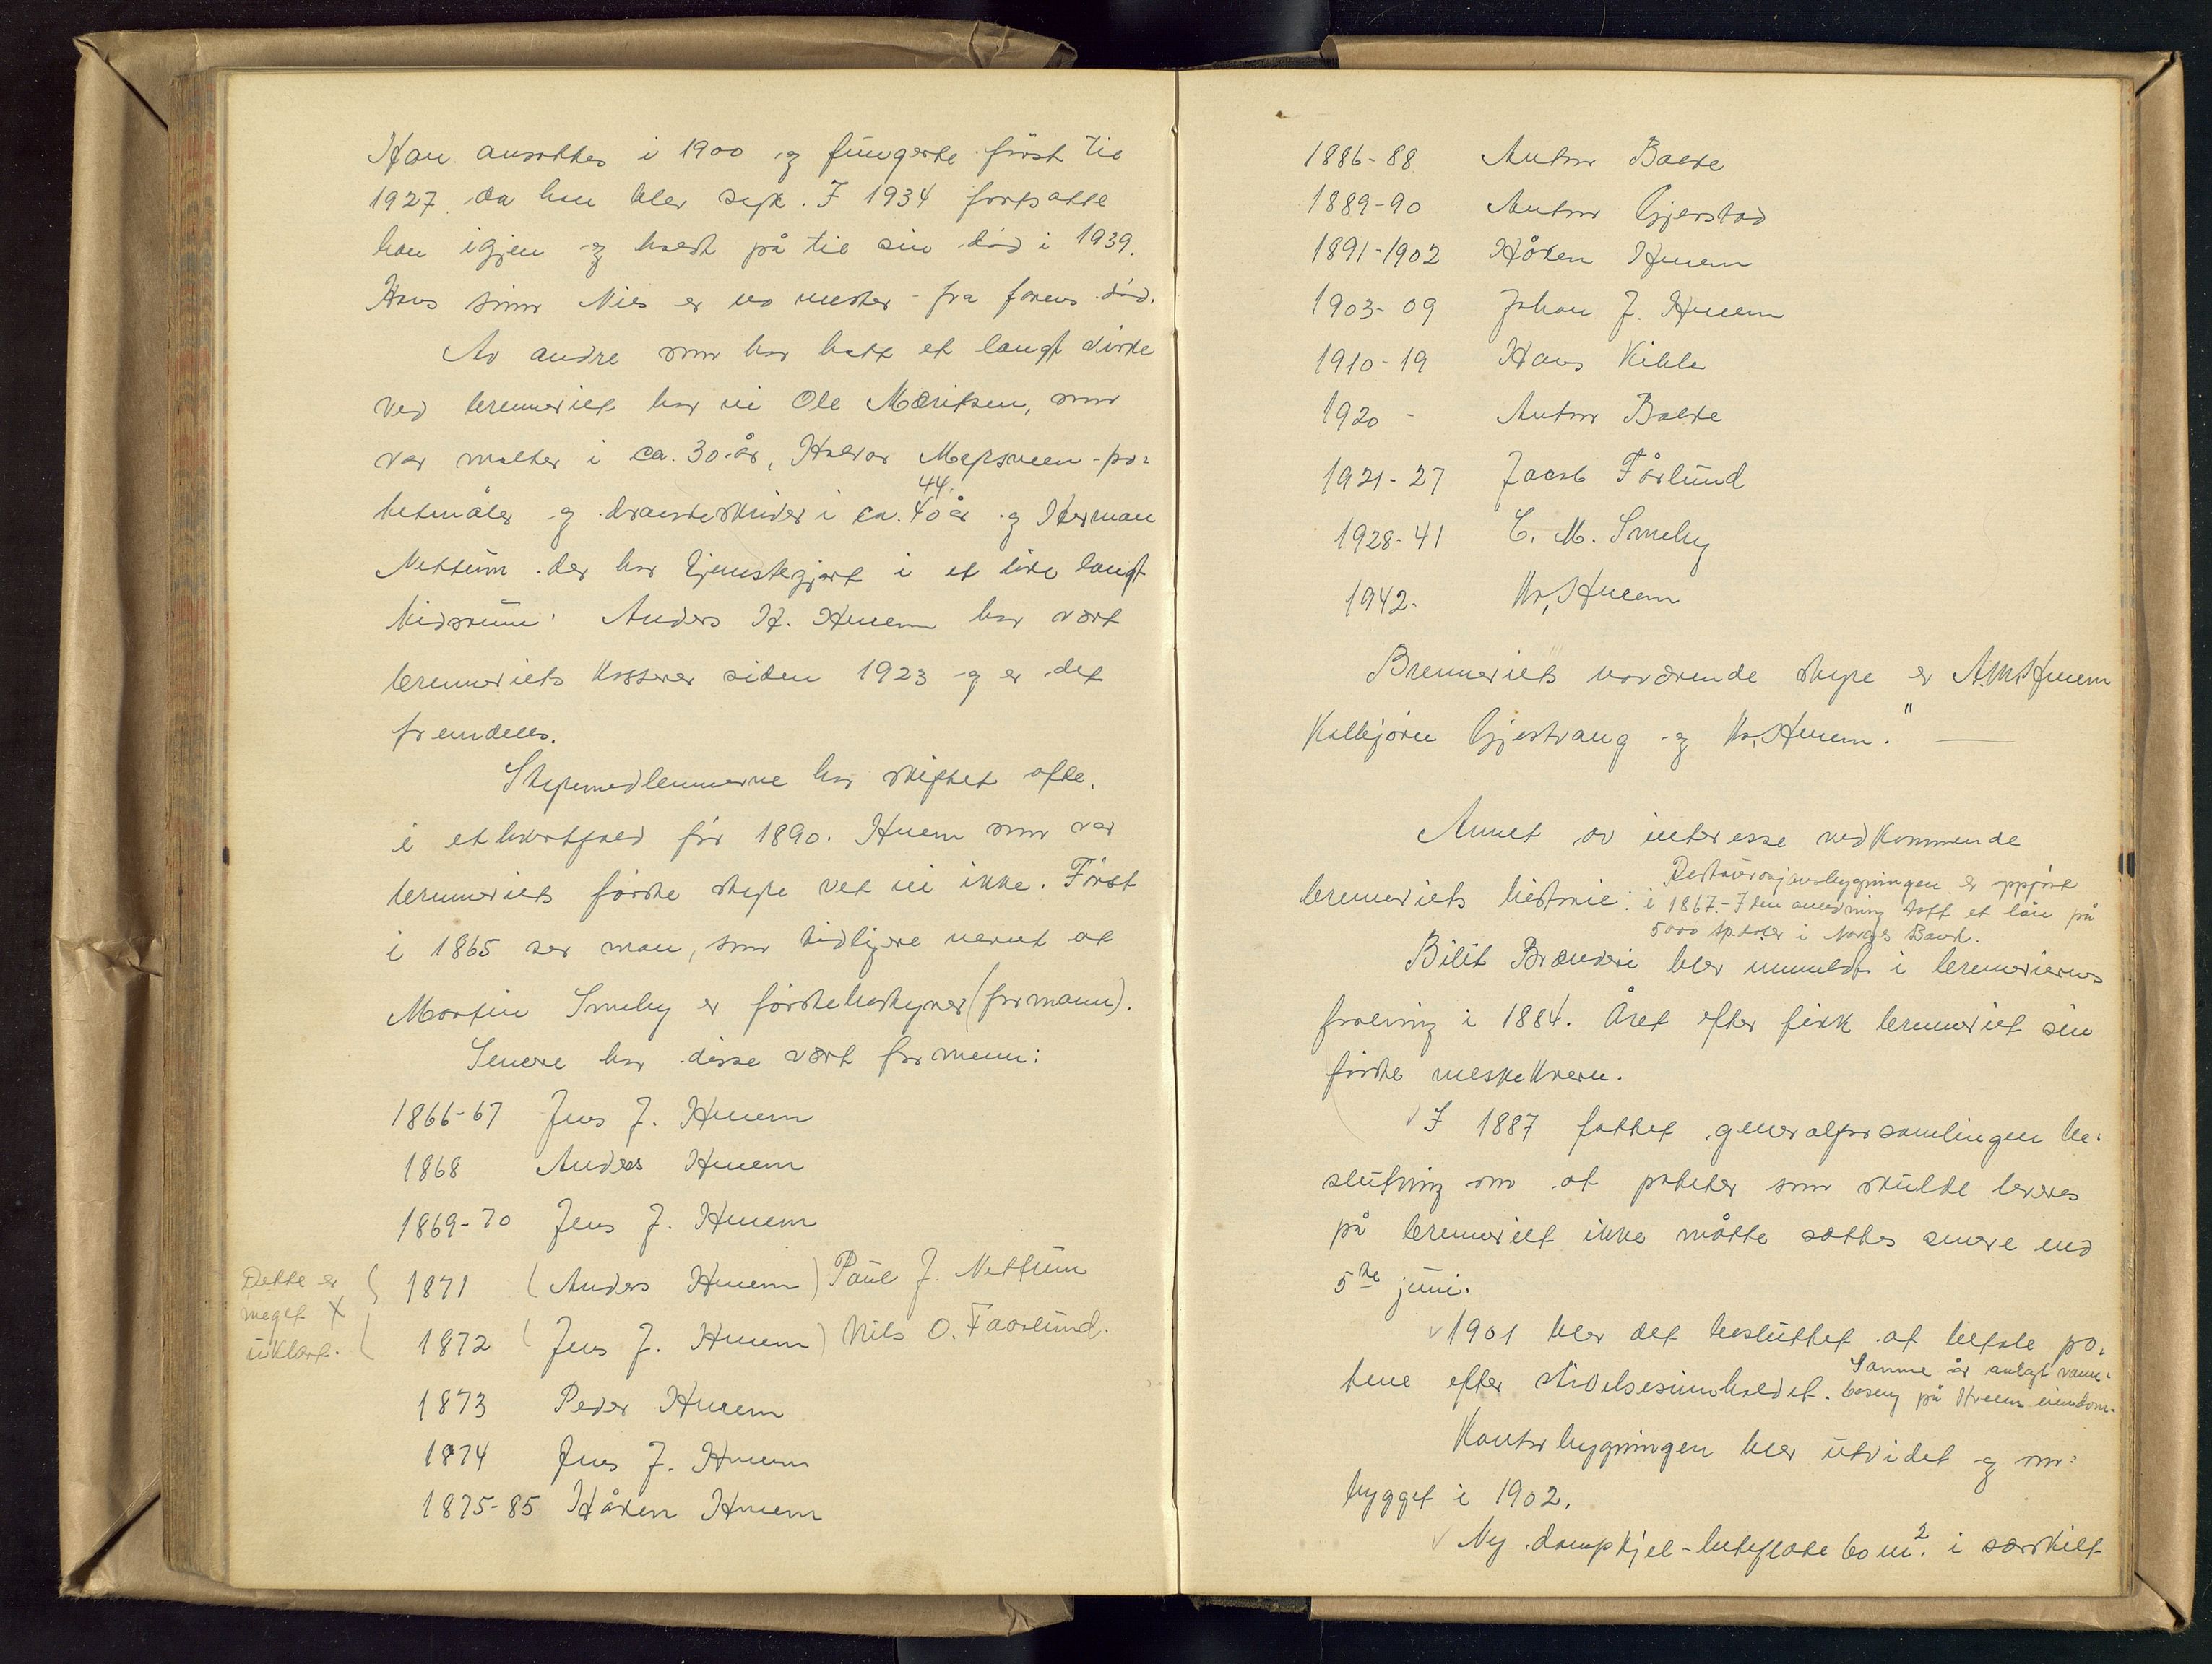 Han ansattes i 1900 og fungerte först til
1927 da han blev syk. I 1934 fortsatte
han igjen og holdt på til sin död i 1939.
Hans sönn Nils er no mester fra farens död.
Av andre som har hatt et langt virke
ved brenneriet har vi Ole Mœritsen, som
var malter i ca. 30 år, Halvor - po-
44
tetmåler og i ca. 40 år og Herman
Nettum der har tjenstegjort i et like langt
tidsrum. Anders H. Huem har vœrt
brenneriets kasserer siden 1923 og er det
fremdeles.
Styremedlemmerne har skiftet ofte,
i ethvertfald för 1890. Hvem som var
brenneriets förste styre vet vi ikke. Först
i 1865 ser man, som tidligere nevnt at
Martin Smeby er förstebestyrer (formann).
Senere har disse vœrt formenn:
1866-67 Jens J. Huem
1868 Anders Huem
1869-70 Jens J. Huem
Dette er
meget X
uklart.
1871 (Anders Huem) Paul J. Nettum
1872 (Jens J. Huem) Nils O. Faarlund.
1873 Peder Huem
1874 Jens J. Huem
1875-85 Håken Huem
1886-88 Anton Balke
1889-90 Anton Gjerstad
1891-1902 Håken Huem
1903-09 Johan J. Huem
1910-19 Hans Kihle
1920 - Anton Balke
1921-27 Jacob Fårlund
1928-41 C. M. Smeby
1942- Kr. Huem
Brenneriets nuvœrende styre er A.M. Huem
Kolbjörn Gjestvang og Kr. Huem." —
Annet av interesse vedkommende
brenneriets historie: Restaurasjonsbygningen er oppfört
i 1867. - I den anledning tatt et lån på
5000 Sp.daler i Norges Bank.
Bilit Brœnderi blev innmeldt i brenneriernes
forening i 1884. Året efter fikk brenneriet sin
förste meskekvern.
√ I 1887 fattet generalforsamlingen be-
slutning om at poteter som skulde leveres
på brenneriet ikke måtte sœttes senere end
5te juni.
√ 1901 blev det besluttet at betale po-
tene efter stivelsesinnholdet. Samme år anlagt vann-
baseng på Hveems eiendom.
Kontorbygningen blev utvidet og om-
bygget i 1902.
√ Ny dampkjel - heteflate 60 m2. i sœrskilt